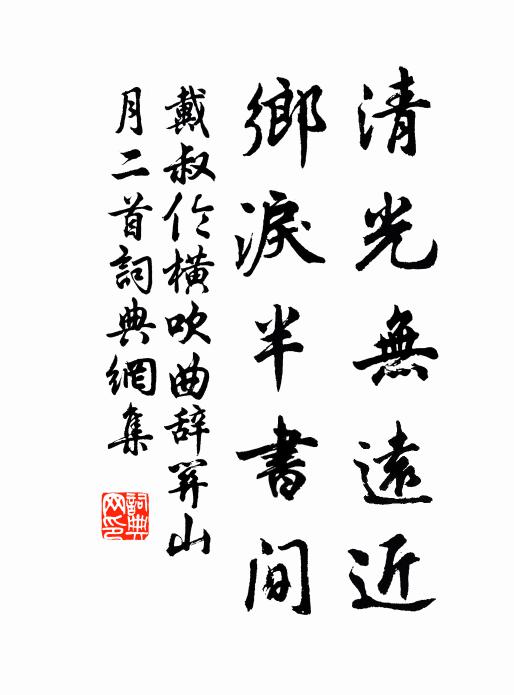 清光無遠近
鄉淚半書間
戴叔伦橫吹曲辞关山
月二首詞典網集
詞典网印